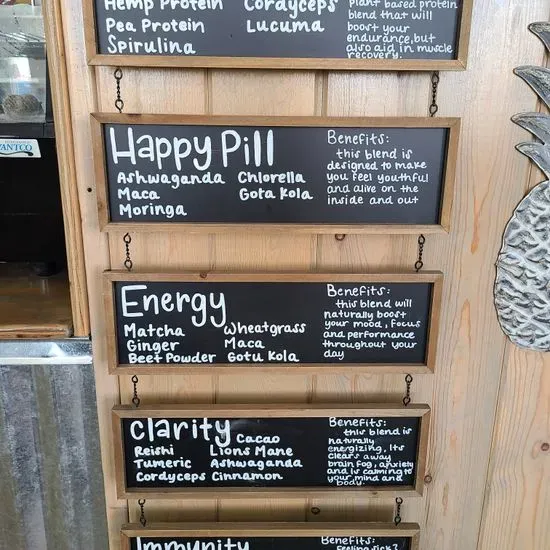 Hemp Protein Cordyceps
Pea Protein Lucuma
Spirulina
plant based protein
blend that will
boost your
endurance, but
also aid in muscle
recovery.
Happy Pill
Ashwaganda Chlorella
Maca Gota Kola
Moringa
Benefits:
this blend is
designed to make
you feel youthful
and alive on the
inside and out
Energy
Matcha Wheatgrass
Ginger Maca
Beet Powder Gotu Kola
Benefits:
this blend will
naturally boost
your mood, focus
and performance
throughout your
day
Clarity Cacao
Reishi Lions Mane
Tumeric Ashwaganda
Cordyceps Cinnamon
Benefits:
this blend is
naturally
energizing. Its
clears away
brain fog, anxiety
and is calming to
your mind and
body.
Immunity
Benefits:
Feeling sick?
VANTCO